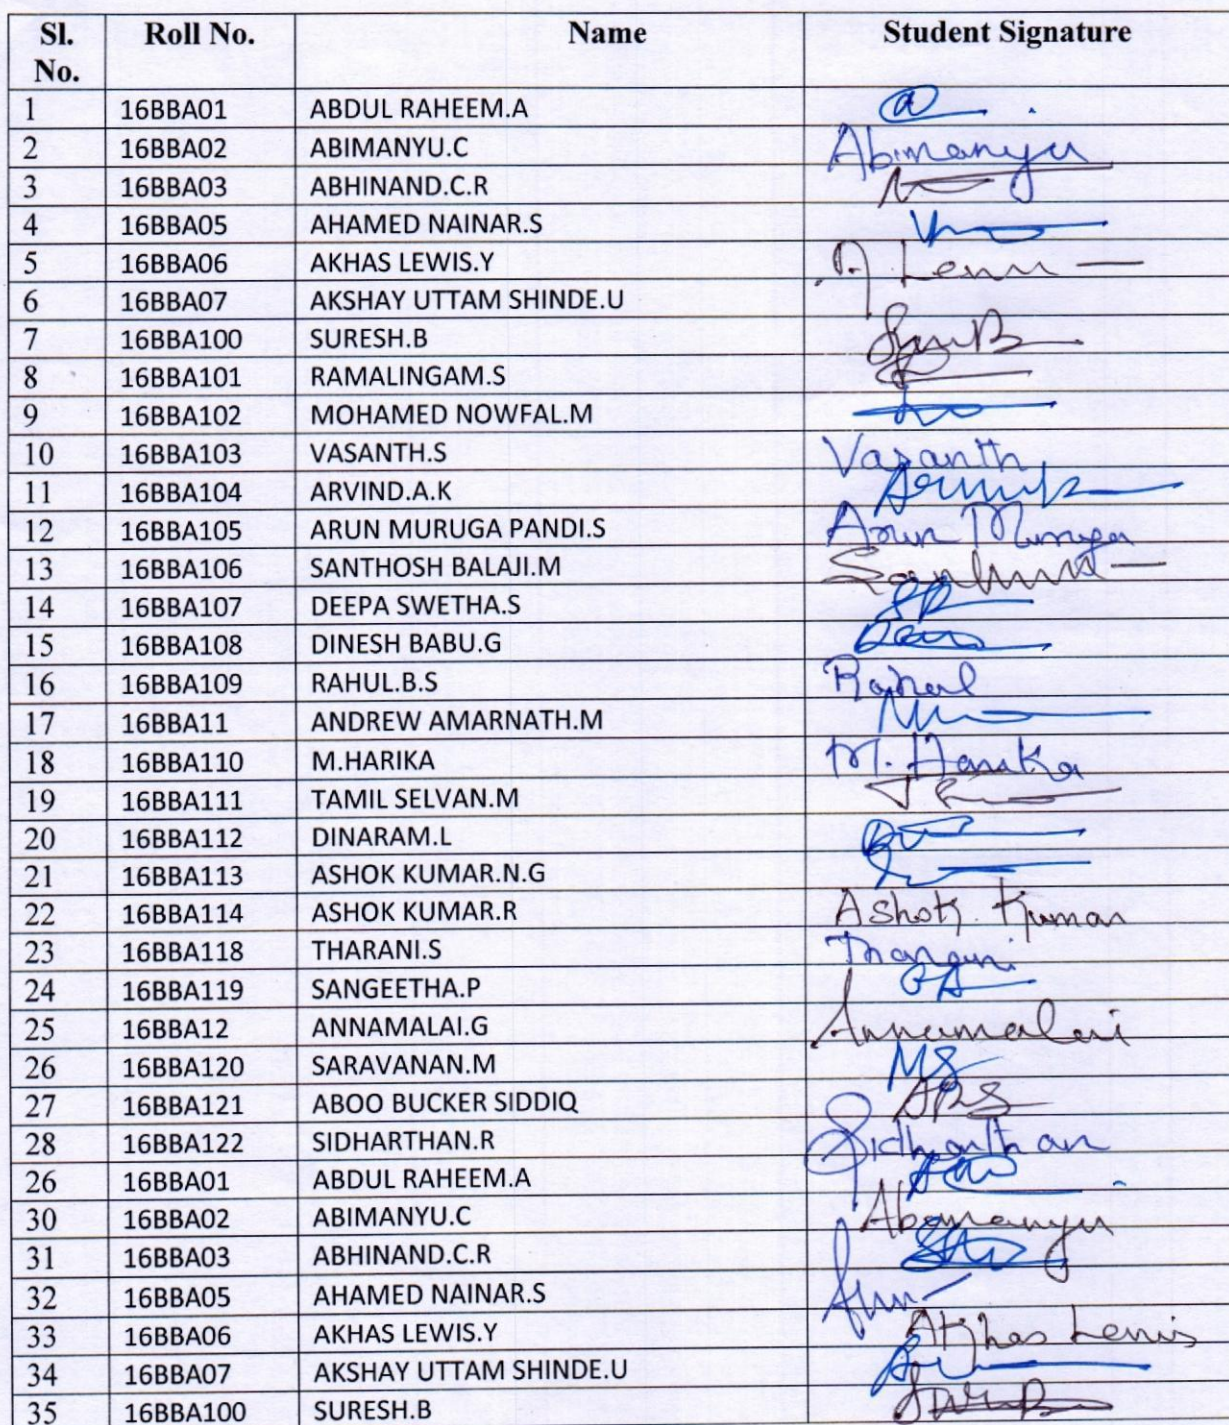 Sl. No. Roll No. Name Student Signature
1 16BBA01 ABDUL RAHEEM.A
2 16BBA02 ABIMANYU.C Abimanyu
3 16BBA03 ABHINAND.C.R
4 16BBA05 AHAMED NAINAR.S
5 16BBA06 AKHAS LEWIS.Y
6 16BBA07 AKSHAY UTTAM SHINDE.U
7 16BBA100 SURESH.B
8 16BBA101 RAMALINGAM.S
9 16BBA102 MOHAMED NOWFAL.M
10 16BBA103 VASANTH.S Vasanth
11 16BBA104 ARVIND.A.K
12 16BBA105 ARUN MURUGA PANDI.S Arun Muruga
13 16BBA106 SANTHOSH BALAJI.M
14 16BBA107 DEEPA SWETHA.S
15 16BBA108 DINESH BABU.G
16 16BBA109 RAHUL.B.S Rahul
17 16BBA11 ANDREW AMARNATH.M
18 16BBA110 M.HARIKA M. Harika
19 16BBA111 TAMIL SELVAN.M
20 16BBA112 DINARAM.L
21 16BBA113 ASHOK KUMAR.N.G
22 16BBA114 ASHOK KUMAR.R Ashok Kumar
23 16BBA118 THARANI.S
24 16BBA119 SANGEETHA.P
25 16BBA12 ANNAMALAI.G Annamalai
26 16BBA120 SARAVANAN.M MS
27 16BBA121 ABOO BUCKER SIDDIQ ABS
28 16BBA122 SIDHARTHAN.R Sidharthan
26 16BBA01 ABDUL RAHEEM.A
30 16BBA02 ABIMANYU.C Abimanyu
31 16BBA03 ABHINAND.C.R
32 16BBA05 AHAMED NAINAR.S
33 16BBA06 AKHAS LEWIS.Y Akhas Lewis
34 16BBA07 AKSHAY UTTAM SHINDE.U
35 16BBA100 SURESH.B